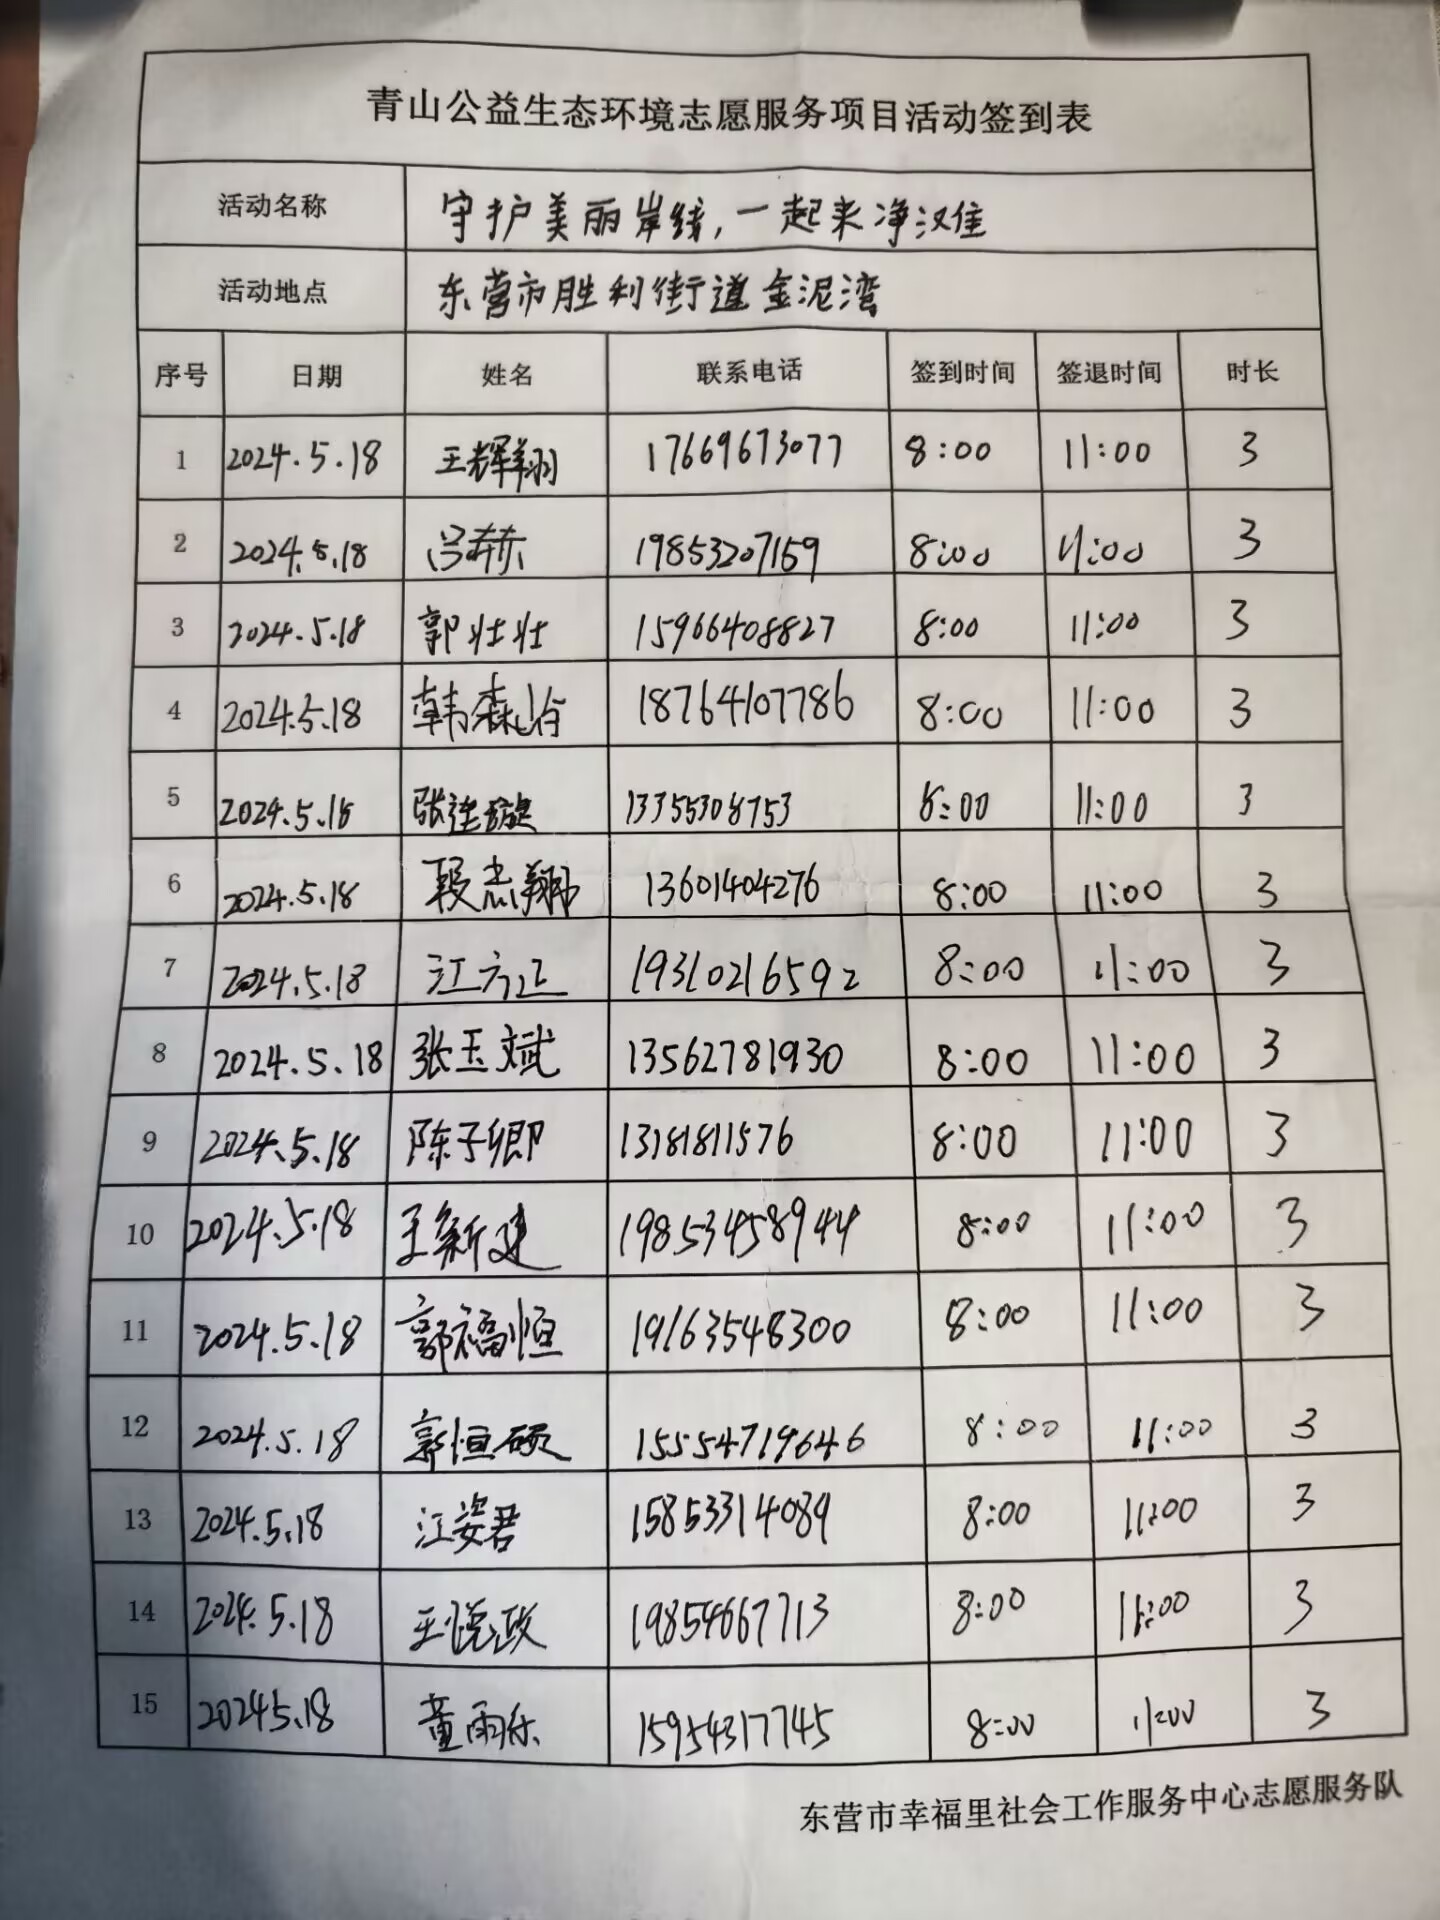 青山公益生态环境志愿服务项目活动签到表
活动名称 守护美丽岸线，一起来净汉佳
活动地点 东营市胜利街道金泥湾
序号 日期 姓名 联系电话 签到时间 签退时间 时长
1 2024.5.18 王辉翔 17669673077 8:00 11:00 3
2 2024.5.18 吕 19853207159 8:00 11:00 3
3 2024.5.18 郭壮壮 15966408827 8:00 11:00 3
4 2024.5.18 韩森 18764107786 8:00 11:00 3
5 2024.5.18 张连璇 13355308753 8:00 11:00 3
6 2024.5.18 段志翔 13601404276 8:00 11:00 3
7 2024.5.18 江方正 19310216592 8:00 11:00 3
8 2024.5.18 张玉斌 13562781930 8:00 11:00 3
9 2024.5.18 陈子卿 13181811576 8:00 11:00 3
10 2024.5.18 王新建 19853458944 8:00 11:00 3
11 2024.5.18 郭福恒 19163548300 8:00 11:00 3
12 2024.5.18 郭恒硕 15554719646 8:00 11:00 3
13 2024.5.18 江姿君 15853314089 8:00 11:00 3
14 2024.5.18 王悦政 19854667713 8:00 11:00 3
15 20245.18 董雨乐 15954317745 8:00 11:00 3
东营市幸福里社会工作服务中心志愿服务队